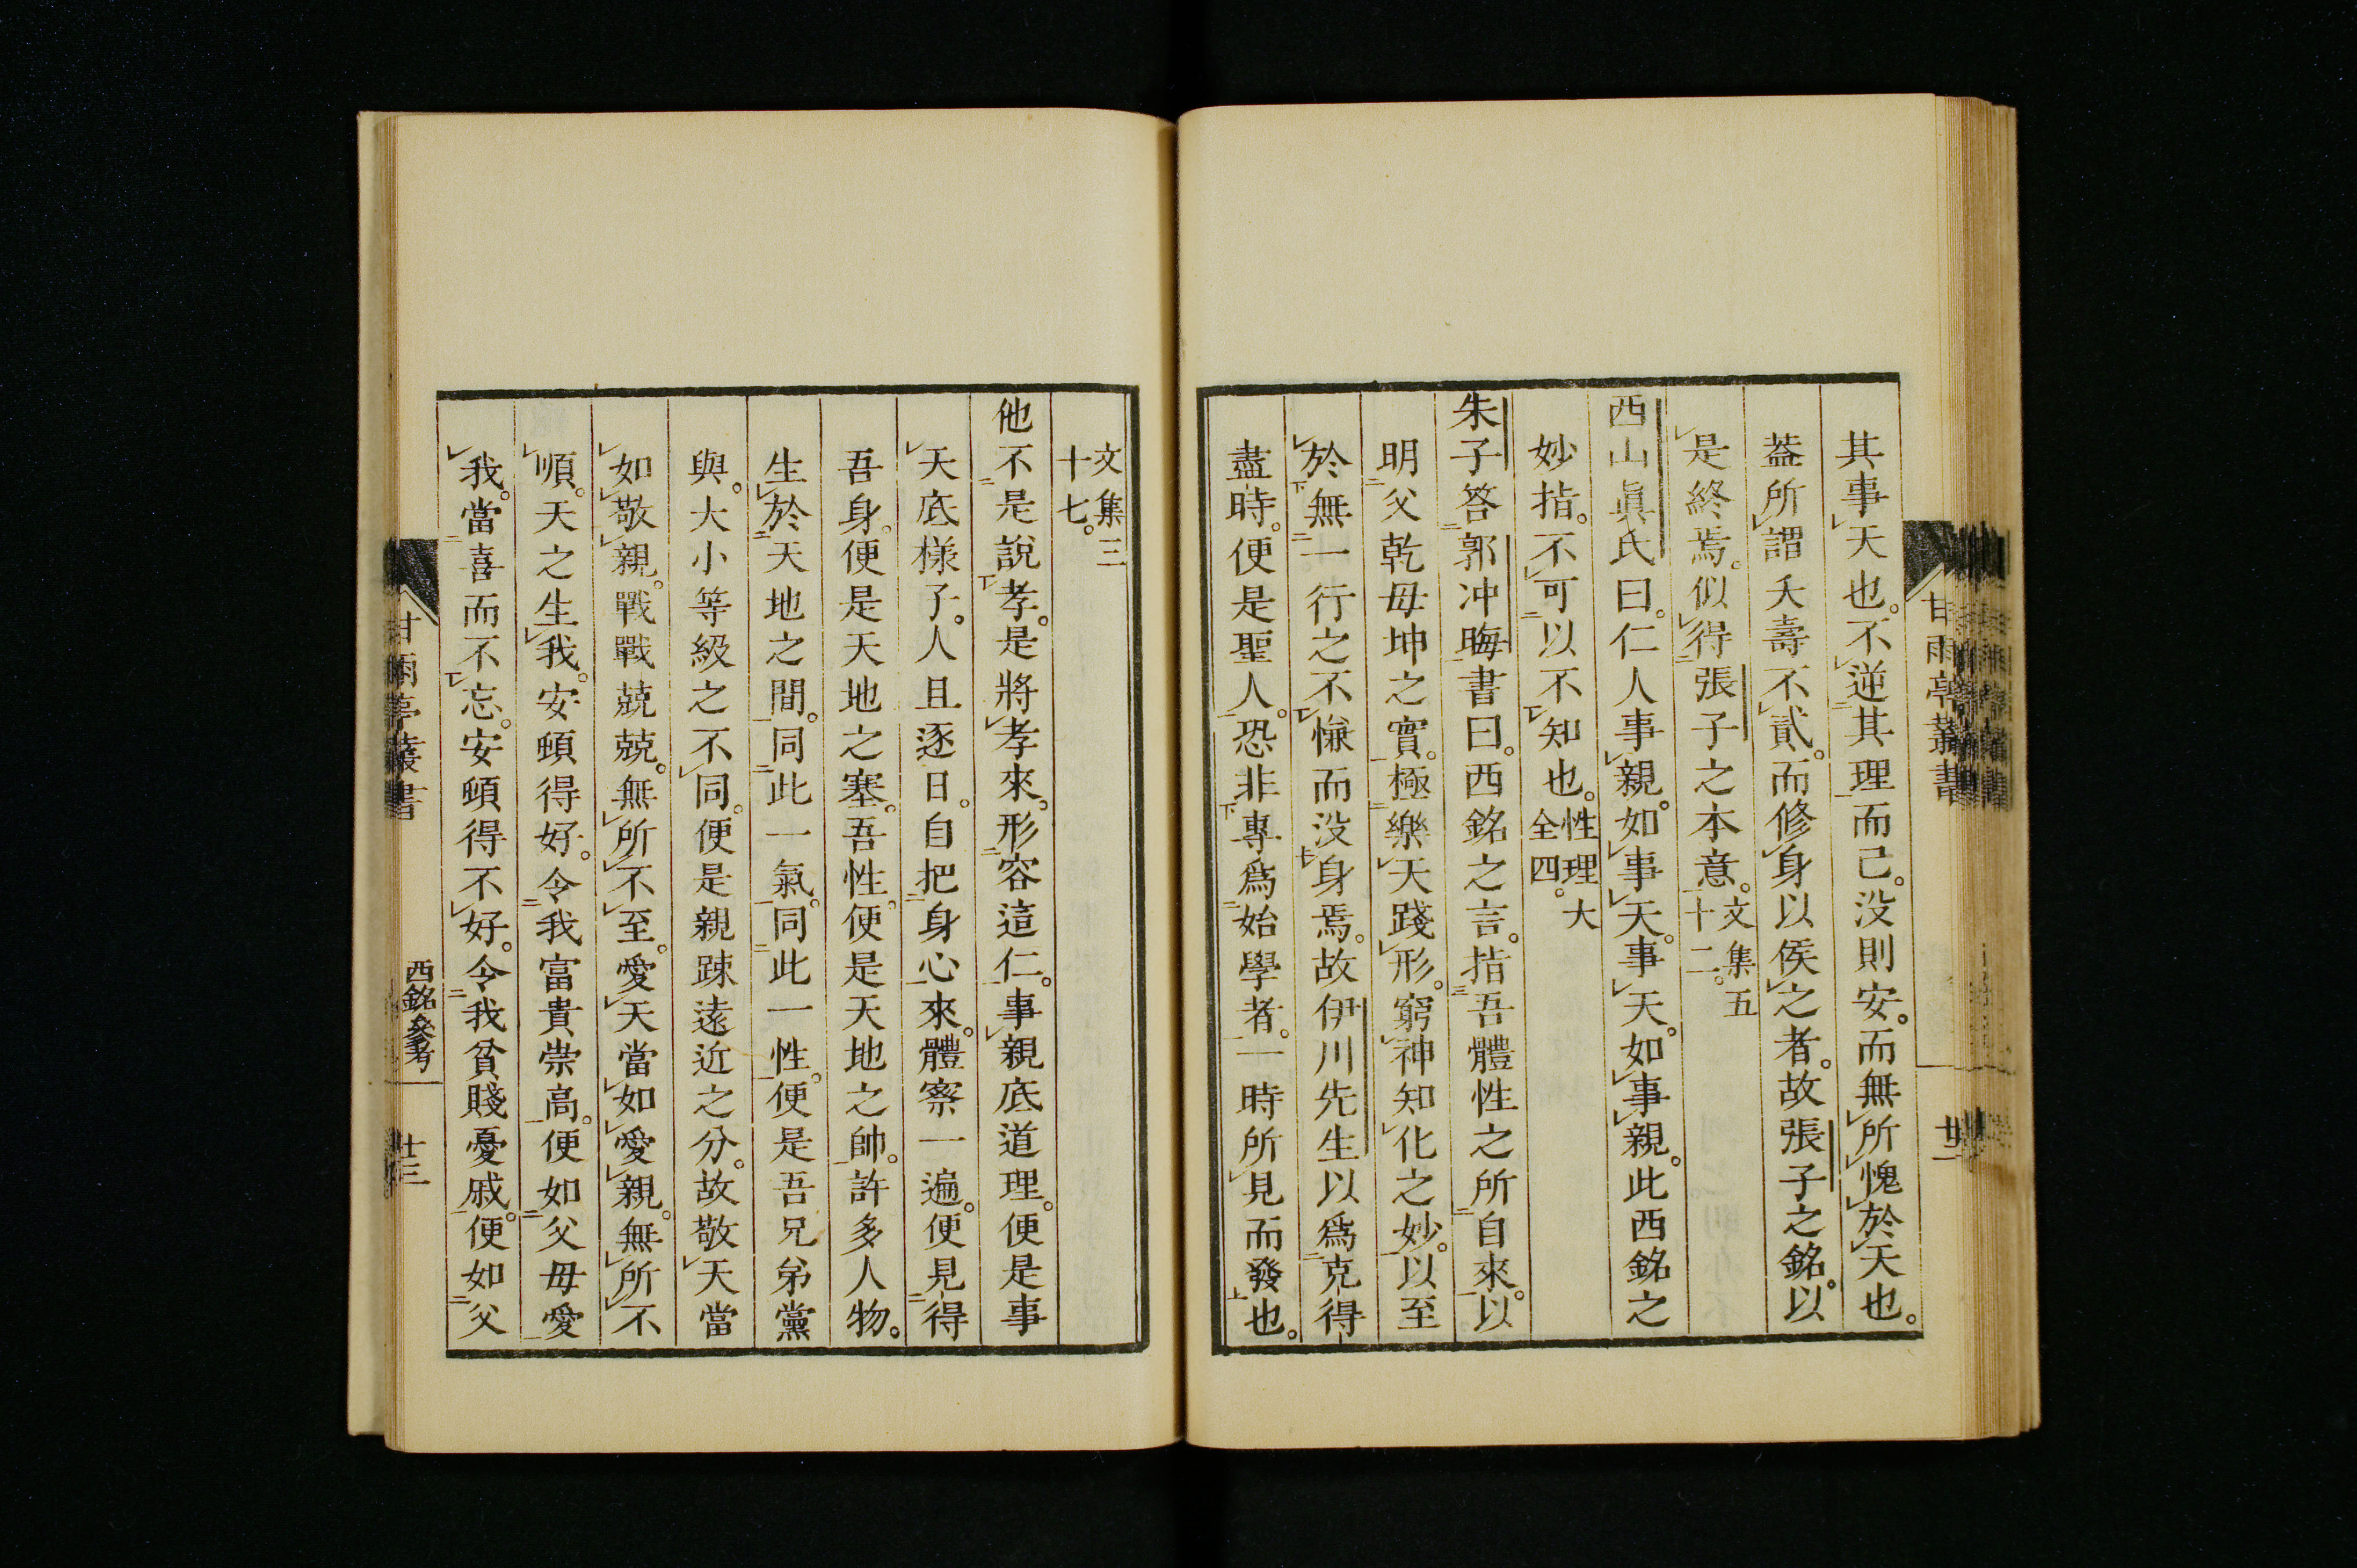 其事天也。不逆其理而已。没則安。而無所愧於天也。
葢所謂夭壽不貳。而修身以俟之者。故張子之銘。以
是終焉。似得張子之本意。文集五十二。
西山眞氏曰。仁人事親。如事天。事天。如事親。此西銘之
妙指。不可以不知也。性理大全四。
朱子答郭冲晦書曰。西銘之言。指吾體性之所自來。以
明父乾母坤之實。極樂天踐形。窮神知化之妙。以至
於無一行之不慊而没身焉。故伊川先生以爲克得
盡時。便是聖人。恐非專爲始學者。一時所見而發也。
文集三十七。
他不是說孝。是將孝來。形容這仁。事親底道理。便是事
天底樣子。人且逐日。自把身心來。體察一遍。便見得
吾身。便是天地之塞。吾性。便是天地之帥。許多人物。
生於天地之間。同此一氣。同此一性。便是吾兄弟黨
與。大小等級之不同。便是親踈遠近之分。故敬天當
如敬親。戰戰兢兢。無所不至。愛天當如愛親。無所不
順。天之生我。安頓得好。令我富貴崇高。便如父母愛
我。當喜而不忘。安頓得不好。令我貧賤憂戚。便如父
甘雨亭叢書
廿二
甘雨亭叢書
西銘參考
廿三